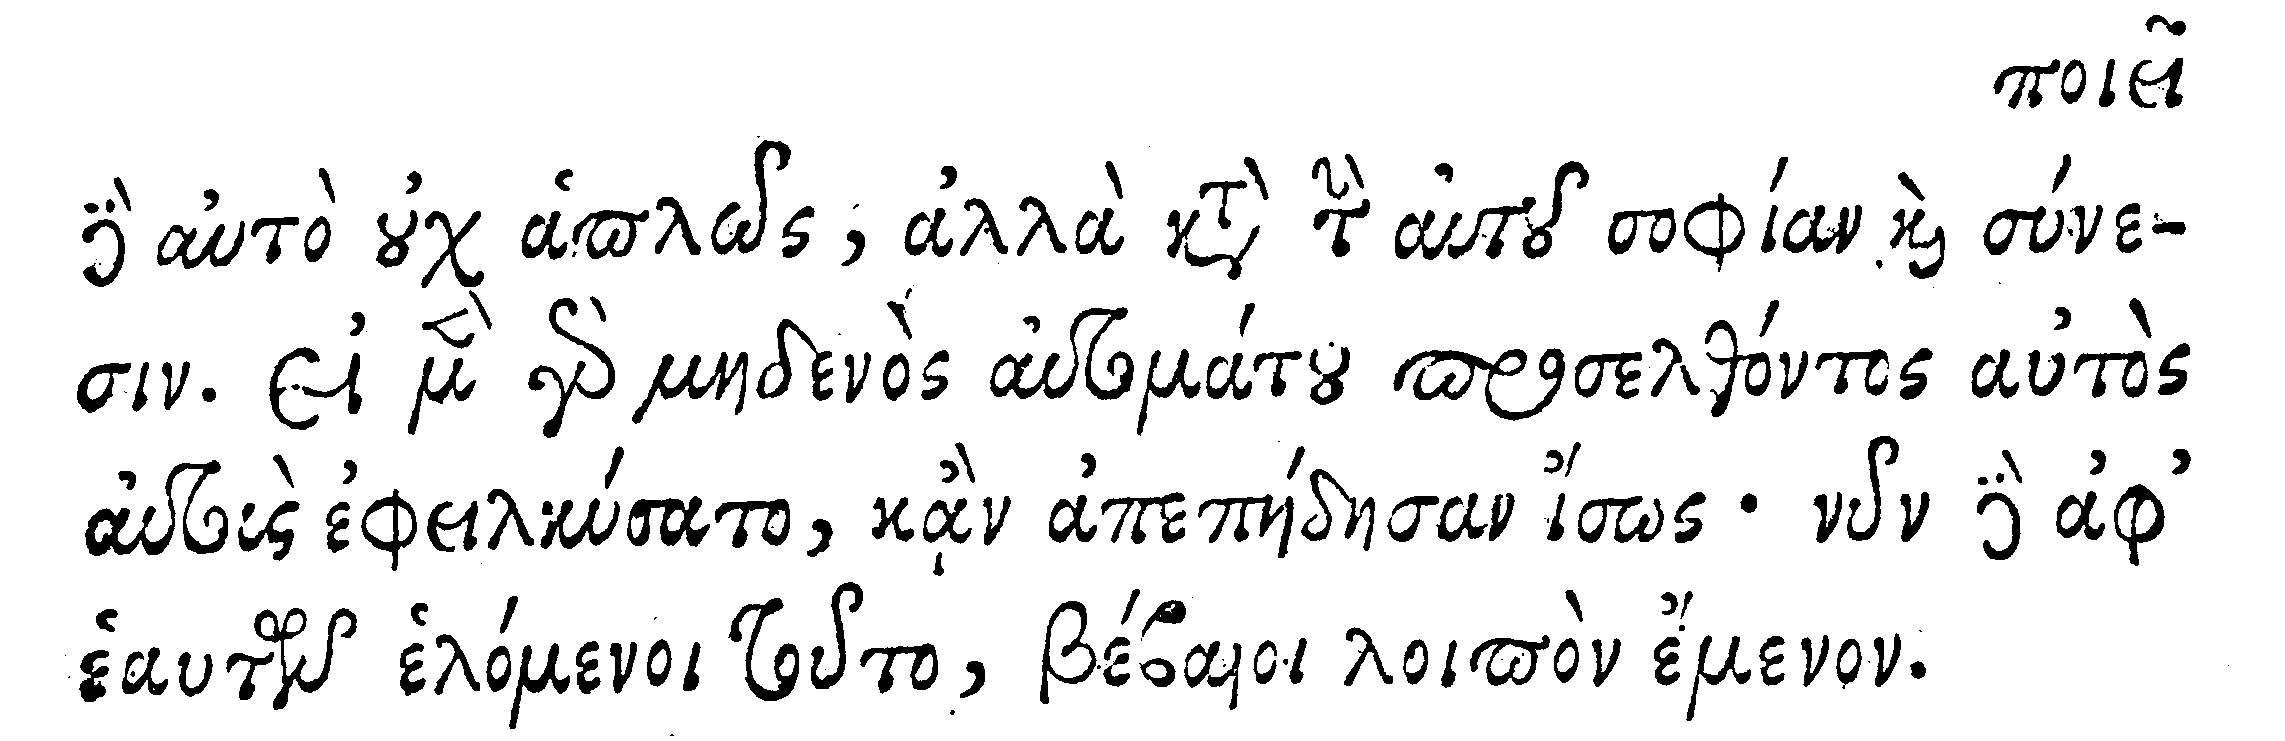 ποιεῖ
δὲ αὐτὸ οὐχ ἁπλῶς, ἀλλὰ κατὰ τὴν αὐτοῦ σοφίαν καὶ σύνε-
σιν. εἰ μὲν γὰρ μηδενὸς αὐτομάτου προσελθόντος αὐτὸς
αὐτοὺς ἐφειλκύσατο, κᾂν ἀπεπήδησαν ἴσως· νῦν δὲ ἀφ’
ἑαυτῶν ἑλόμενοι τοῦτο, βέβαιοι λοιπὸν ἔμενον.